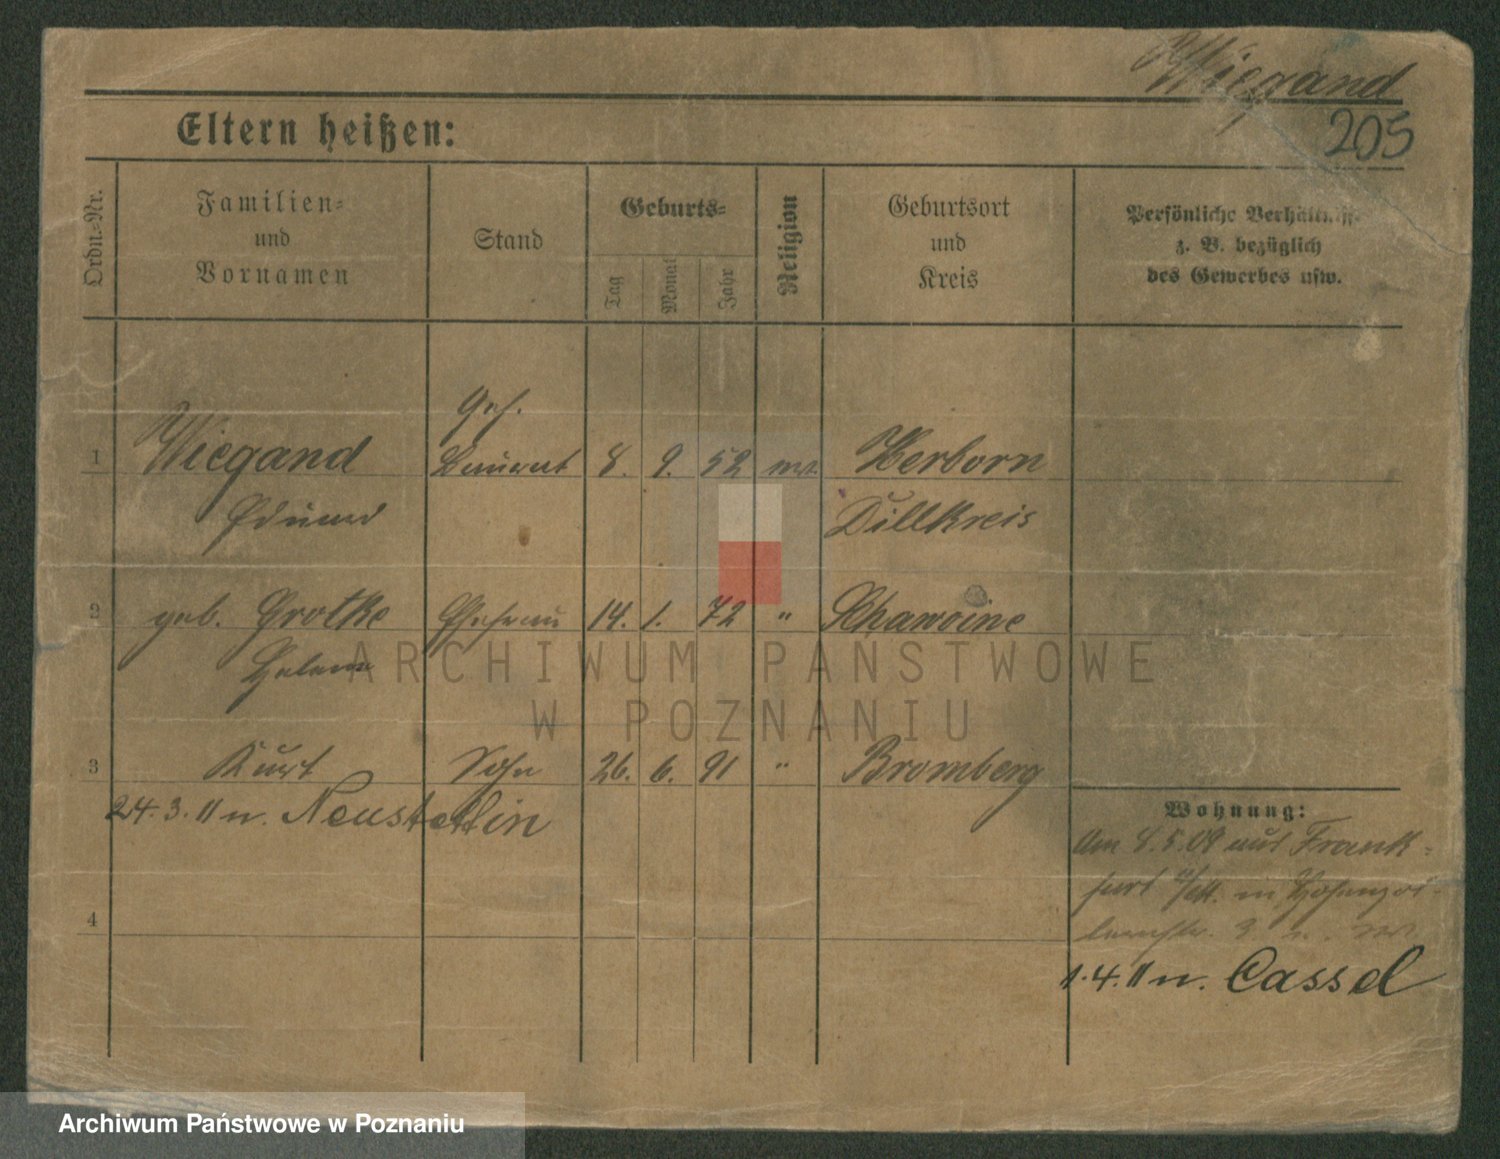 Wiegand
205
Eltern heißen:
Ordn.-Nr.
Familien-
und
Vornamen
Stand
Geburts-
Tag
Monat
Jahr
Religion
Geburtsort
und
Kreis
Persönliche Verhältniss
z. B. bezüglich
des Gewerbes usw.
Geh.
1 Wiegand Baurat 8. 9. 52 Herborn
Eduard Dillkreis
2 geb. Grotke Ehefrau 14. 1. 72 " Scharoine
Helene
3 Kurt Sohn 26. 6. 91 " Bromberg
24. 3. 11 n. Neustettin
4
Wohnung:
Am 8.5.09 aus Frank-
furt in Hohenzol-
lernstr. 3
1.4.11 n. Cassel
ARCHIWUM PAŃSTWOWE
W POZNANIU
Archiwum Państwowe w Poznaniu